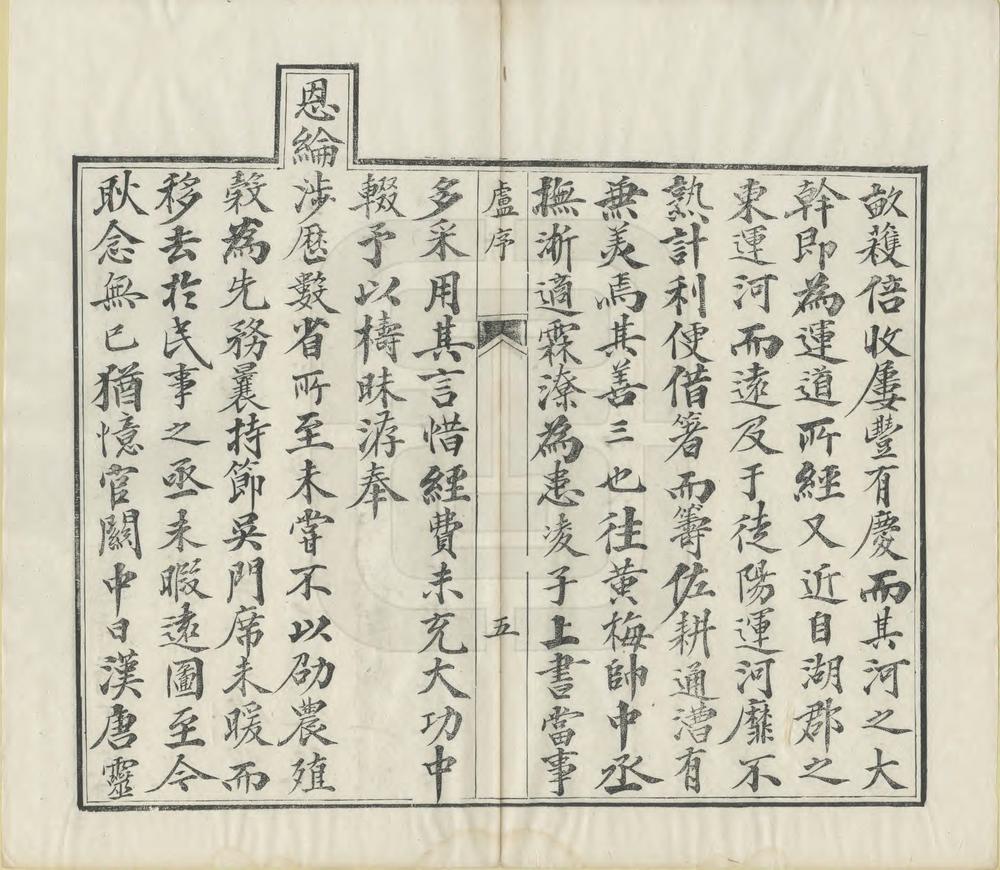 畝穫倍收屢豐有慶而其河之大
幹即為運道所經又近自湖郡之
東運河而遠及于徒陽運河靡不
熟計利便借箸而籌佐耕通漕有
兼美焉其善三也往黃梅帥中丞
撫浙適霖潦為患凌子上書當事
盧序
五
多采用其言惜經費未充大功中
輟予以檮昧洊奉
恩綸
涉歷數省所至未嘗不以劭農殖
穀為先務曩持節吳門席未暖而
移去於民事之亟未暇遠圖至今
耿念無已猶憶官關中日漢唐靈